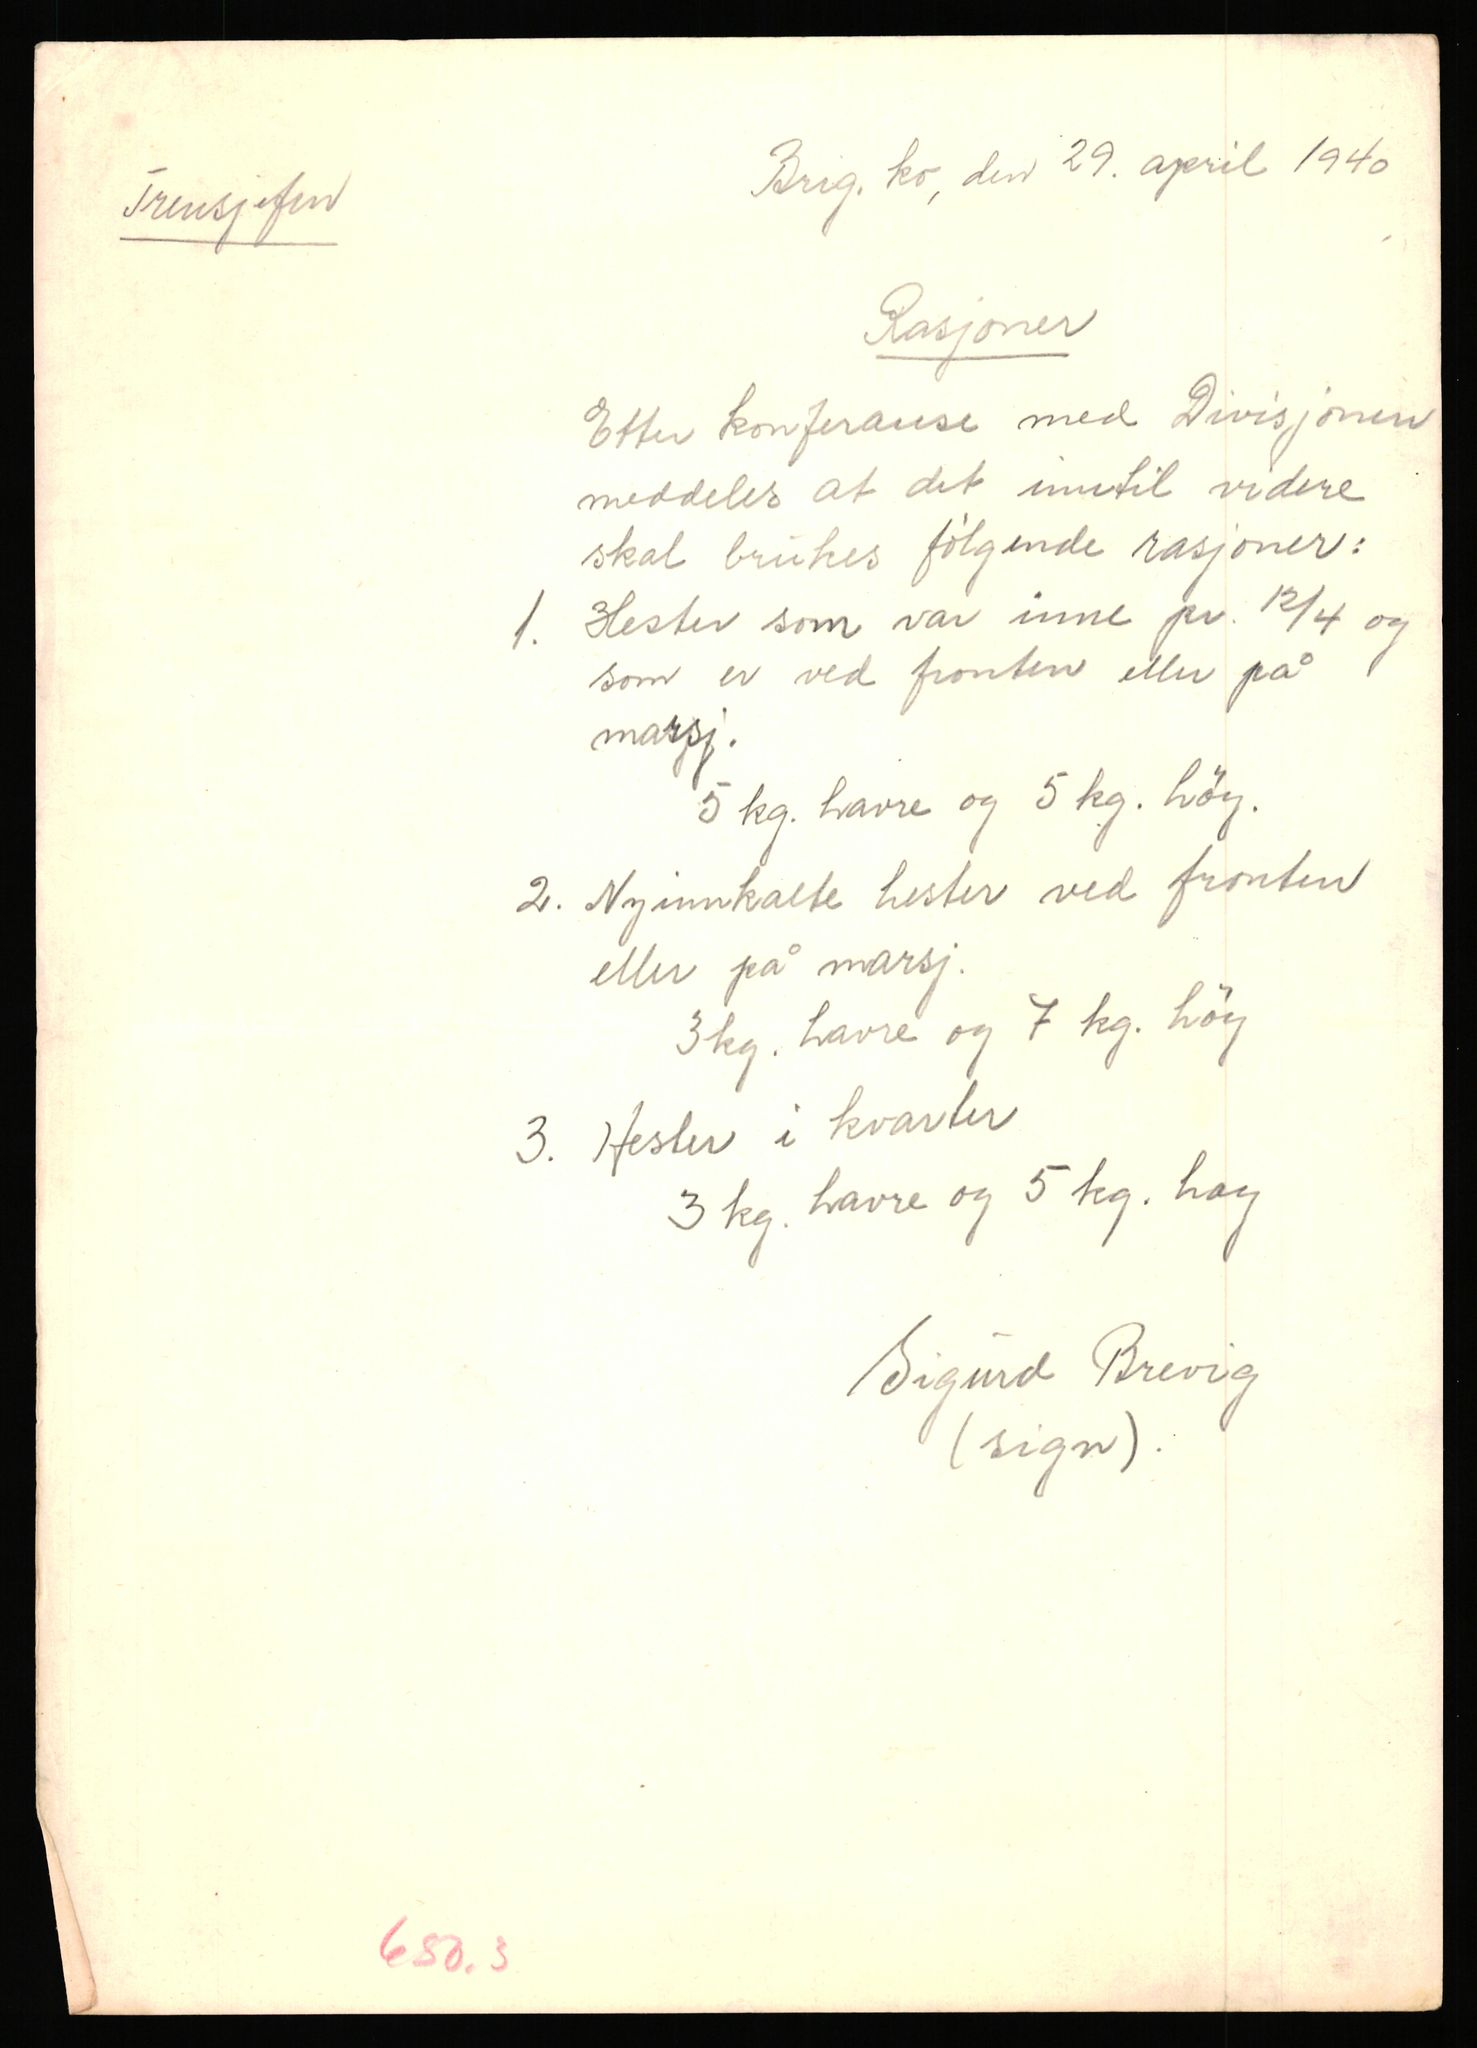 Brig. ko, den 29. april 1940
Trensjefen
Rasjoner
Etter konferanse med Divisjonen
meddeles at det inntil videre
skal brukes følgende rasjoner:
1. Hester som var inne pr. 12/4 og
som er ved fronten eller på
marsj.
5 kg. havre og 5 kg. höy.
2. Nyinnkalte hester ved fronten
eller på marsj.
3 kg. havre og 7 kg. höy
3. Hester i kvarter
3 kg. havre og 5 kg. hoy
Sigurd Brevig
(sign).
650.3